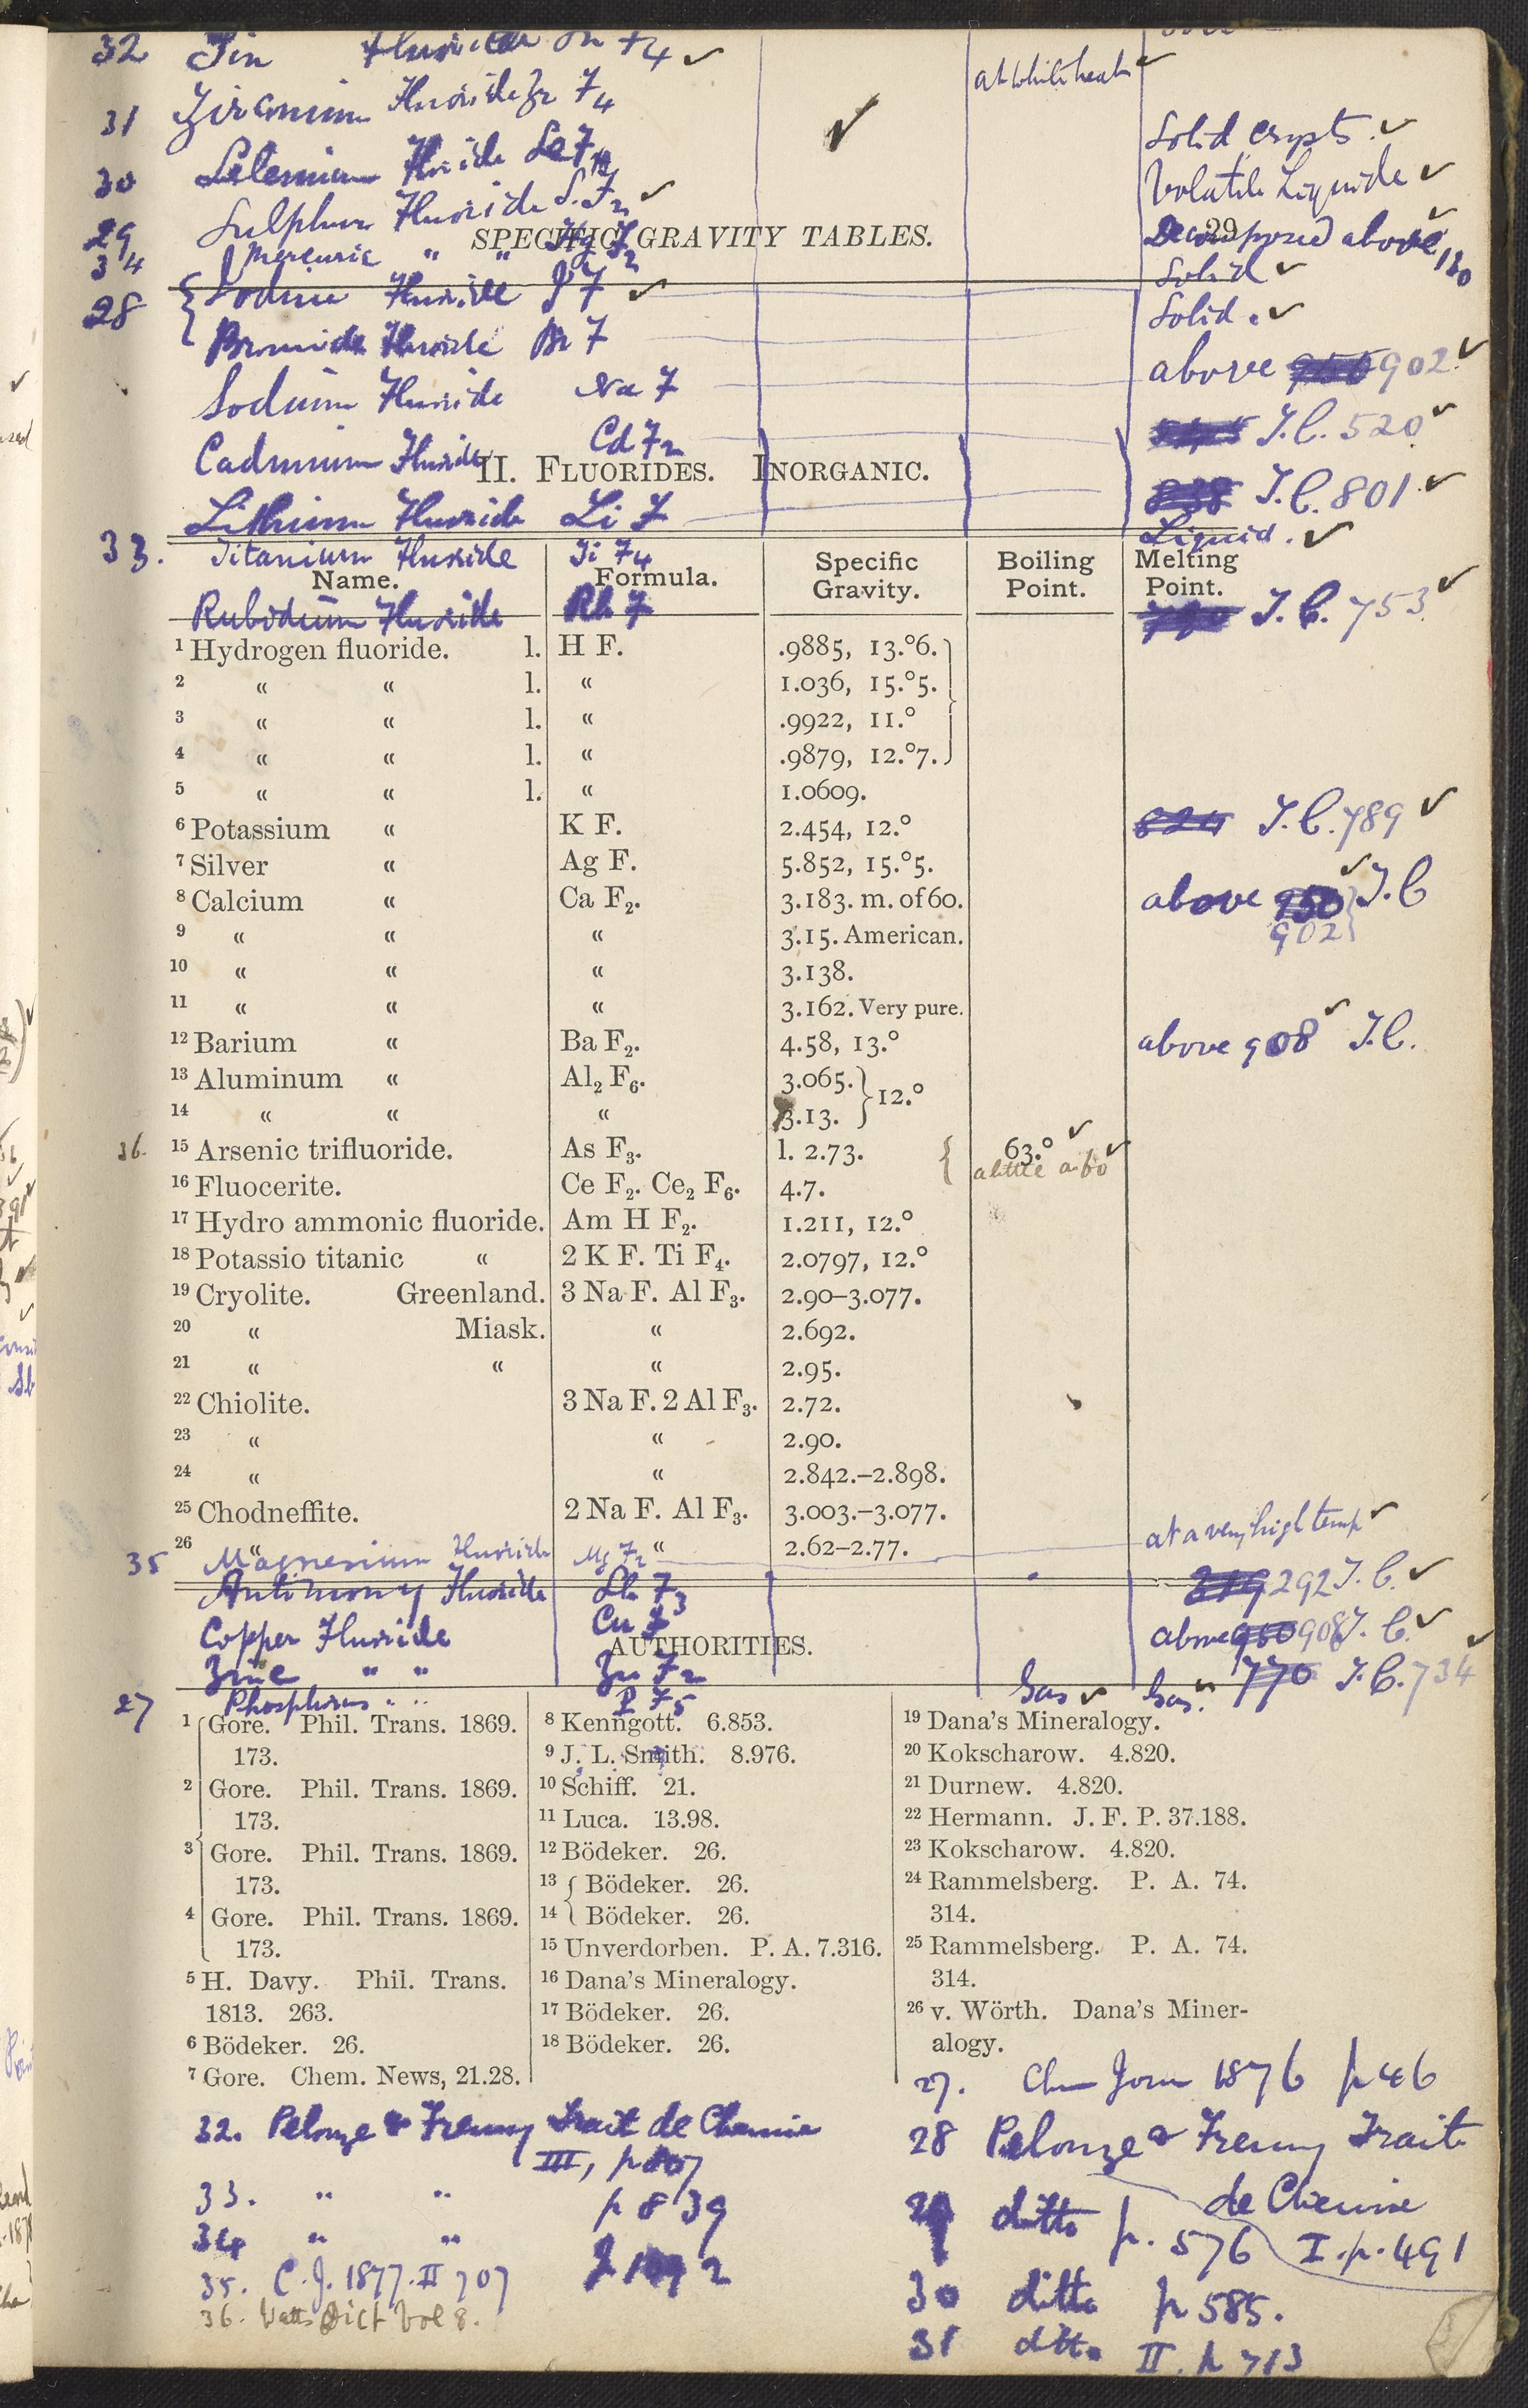 32 Tin Fluoride Sn F4 ✓
at white heat ✓
31 Zirconium Fluoride Zr F4
✓ Solid crysts. ✓
30 Selenium Fluoride Se F
Volatile Liquide ✓
29 Sulphur Fluoride S. F2 ✓
Decomposed above 130 ✓
34 Mercuric " " Hg F2
Solid ✓
SPECIFIC GRAVITY TABLES. 29
28 { Iodine Fluoride I F ✓
Solid. ✓
Bromide Fluoride Br F
above 902 ✓
Sodium Fluoride Na F
T.C. 520 ✓
Cadmium Fluoride Cd F2
II. FLUORIDES. INORGANIC.
T.C. 801 ✓
Lithium Fluoride Li F
Liquid. ✓
33. Titanium Fluoride Ti F4
Name. Formula. Specific Gravity. Boiling Point. Melting Point.
Rubidium Fluoride Rb F
T.C. 753 ✓
1 Hydrogen fluoride. l. H F. .9885, 13.°6.
2 “ “ l. “ 1.036, 15.°5.
3 “ “ l. “ .9922, 11.°
4 “ “ l. “ .9879, 12.°7.
5 “ “ l. “ 1.0609.
6 Potassium “ K F. 2.454, 12.° T.C. 789 ✓
7 Silver “ Ag F. 5.852, 15.°5.
8 Calcium “ Ca F2. 3.183. m. of 60. above 950 902 } T.C ✓
9 “ “ “ 3.15. American.
10 “ “ “ 3.138.
11 “ “ “ 3.162. Very pure.
12 Barium “ Ba F2. 4.58, 13.° above 908 T.C. ✓
13 Aluminum “ Al2 F6. 3.065. } 12.°
14 “ “ “ 3.13.
36. 15 Arsenic trifluoride. As F3. l. 2.73. { 63.° ✓
a little a. 60 ✓
16 Fluocerite. Ce F2. Ce2 F6. 4.7.
17 Hydro ammonic fluoride. Am H F2. 1.211, 12.°
18 Potassio titanic “ 2 K F. Ti F4. 2.0797, 12.°
19 Cryolite. Greenland. 3 Na F. Al F3. 2.90–3.077.
20 “ Miask. “ 2.692.
21 “ “ “ 2.95.
22 Chiolite. 3 Na F. 2 Al F3. 2.72.
23 “ “ 2.90.
24 “ “ 2.842.–2.898.
25 Chodneffite. 2 Na F. Al F3. 3.003.–3.077.
26 “ “ 2.62–2.77.
35 Magnesium Fluoride Mg F2 at a very high temp ✓
Antimony Fluoride Sb F3 292 T.C. ✓
Copper Fluoride Cu F above 950 908 T.C. ✓
AUTHORITIES.
Zinc " " Zn F2 770 T.C. 734 ✓
27 Phosphorus " " P F5 Gas ✓ Gas. ✓
1 Gore. Phil. Trans. 1869.
173.
2 Gore. Phil. Trans. 1869.
173.
3 Gore. Phil. Trans. 1869.
173.
4 Gore. Phil. Trans. 1869.
173.
5 H. Davy. Phil. Trans.
1813. 263.
6 Bödeker. 26.
7 Gore. Chem. News, 21.28.
8 Kenngott. 6.853.
9 J. L. Smith. 8.976.
10 Schiff. 21.
11 Luca. 13.98.
12 Bödeker. 26.
13 { Bödeker. 26.
14 { Bödeker. 26.
15 Unverdorben. P. A. 7.316.
16 Dana’s Mineralogy.
17 Bödeker. 26.
18 Bödeker. 26.
19 Dana’s Mineralogy.
20 Kokscharow. 4.820.
21 Durnew. 4.820.
22 Hermann. J. F. P. 37.188.
23 Kokscharow. 4.820.
24 Rammelsberg. P. A. 74.
314.
25 Rammelsberg. P. A. 74.
314.
26 v. Wörth. Dana’s Miner-
alogy.
27. Chem Journ 1876 p 46
28 Pelouze & Fremy Traite
de Chemie
I. p. 491
29 ditto p. 576
30 ditto p 585.
31 ditto II. p 713
32. Pelouze & Fremy Trait de Chemie
III, p 807
33. " " p 839
34 " "
35. C.J. 1877. II 707
36. Watts Dict Vol 8.